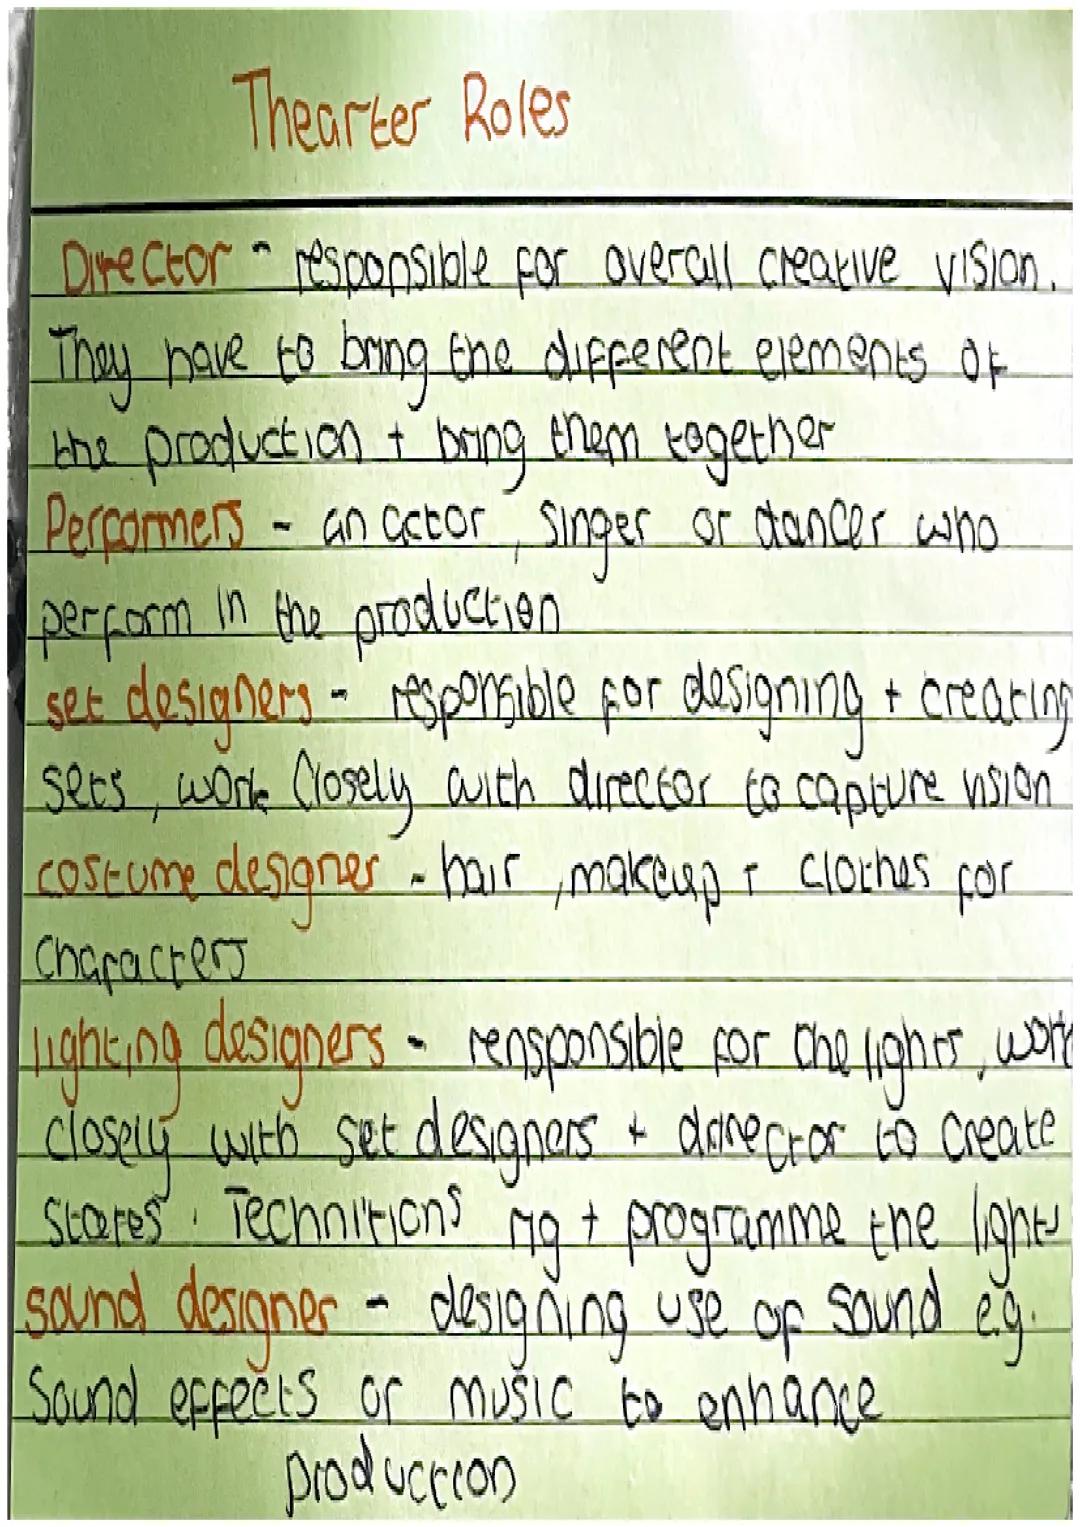 Thearter Roles
Director - responsible for overall creative vision.
They have to bring the different elements of
the production + bring them together
Performers - an actor, singer or dancer who
perform in the production
set designers - responsible for designing + creating
sets, work closely with director to capture vision
costume designer - hair, makeup + clothes for
characters
lighting designers - rensponsible for the lights, work
closely with set designers + director to create
states. Technitions rig + programme the lights
sound designer - designing use of sound e.g.
Sound effects or music to enhance
production